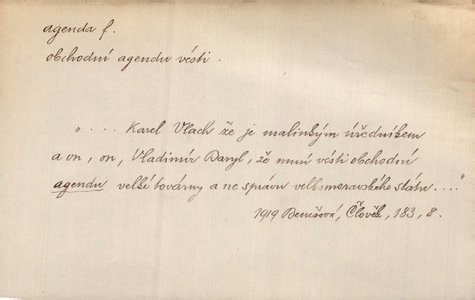 agenda f.
obchodní agendu vésti.
„ . . . . Karel Vlach že je malinkým úředníkem
a on, on, Vladimír Daryl, že musí vésti obchodní
agendu velké továrny a ne správu velkomoravského státu . . . ."
1919 Benešová, Člověk, 183, 8.